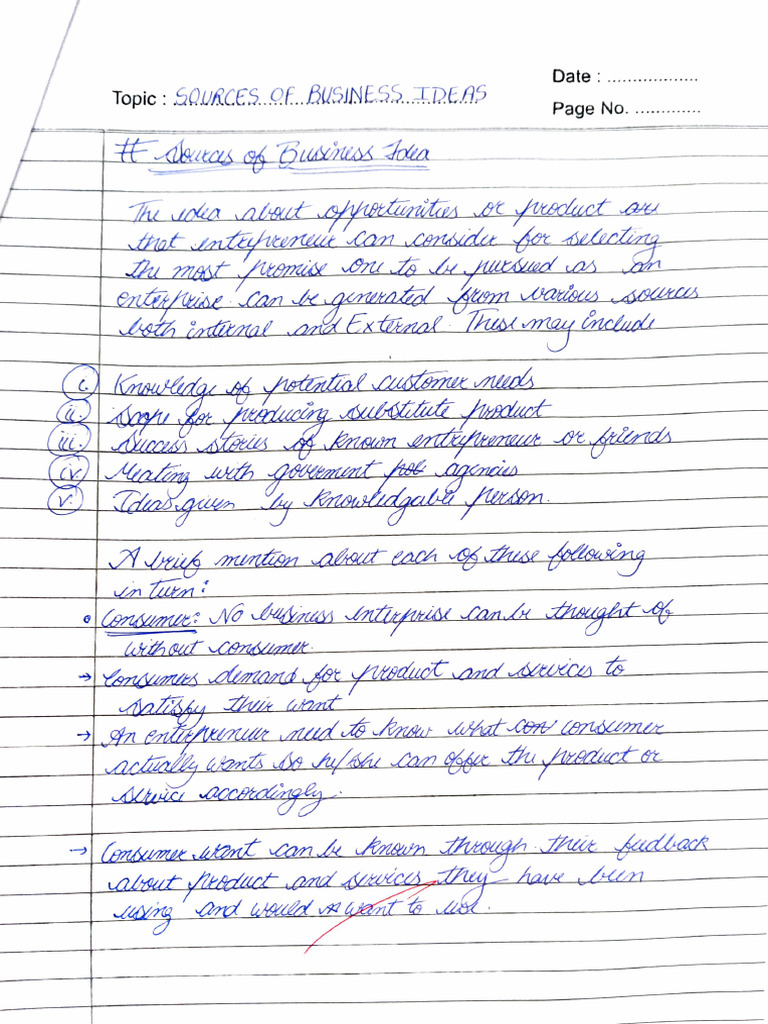 Date : ..................
Topic : SOURCES OF BUSINESS IDEAS
Page No. .............
# Sources of Business Idea
The idea about opportunities or product are
that entrepreneur can consider for selecting
the most promise one to be pursued as an
enterprise can be generated from various sources
both internal and External. These may include
i. Knowledge of potential customer needs
ii. Scope for producing substitute product
iii. Success stories of known entrepreneur or friends
iv. Meating with goverment agencies
v. Ideas given by knowledgable person.
A brief mention about each of these following
in turn:
• Consumer: No business enterprise can be thought of
without consumer.
→ Consumers demand for product and services to
satisfy their want
→ An enterpreneur need to know what consumer
actually wants so he/she can offer the product or
service accordingly.
→ Consumer want can be known through their feedback
about product and services they have been
using and would want to use.